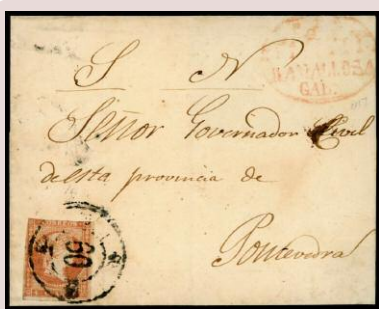 S N
RAMALLOSA
GAL.
Señor Governador Civil
de esta provincia de
Pontevedra
50